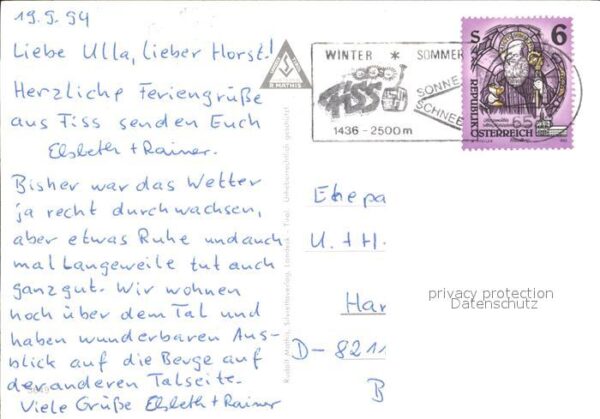 19.9.94
Liebe Ulla, lieber Horst!
Herzliche Feriengrüße
aus Fiss senden Euch
Elsbeth + Rainer.
Bisher war das Wetter
ja recht durchwachsen,
aber etwas Ruhe und auch
mal Langeweile tut auch
ganz gut. Wir wohnen
noch über dem Tal und
haben wunderbaren Aus-
blick auf die Berge auf
der anderen Talseite.
Viele Grüße Elsbeth + Rainer
R MATHIS
Rudolf Mathis, Silvrettaverlag, Landeck - Tirol Urheberrechtlich geschützt
WINTER * SOMMER
FISS
SONNE
SCHNEE
1436 - 2500 m
S 6
REPUBLIK
ÖSTERREICH
65
Ehepa
U. + H.
Har
D - 8211
B
privacy protection
Datenschutz